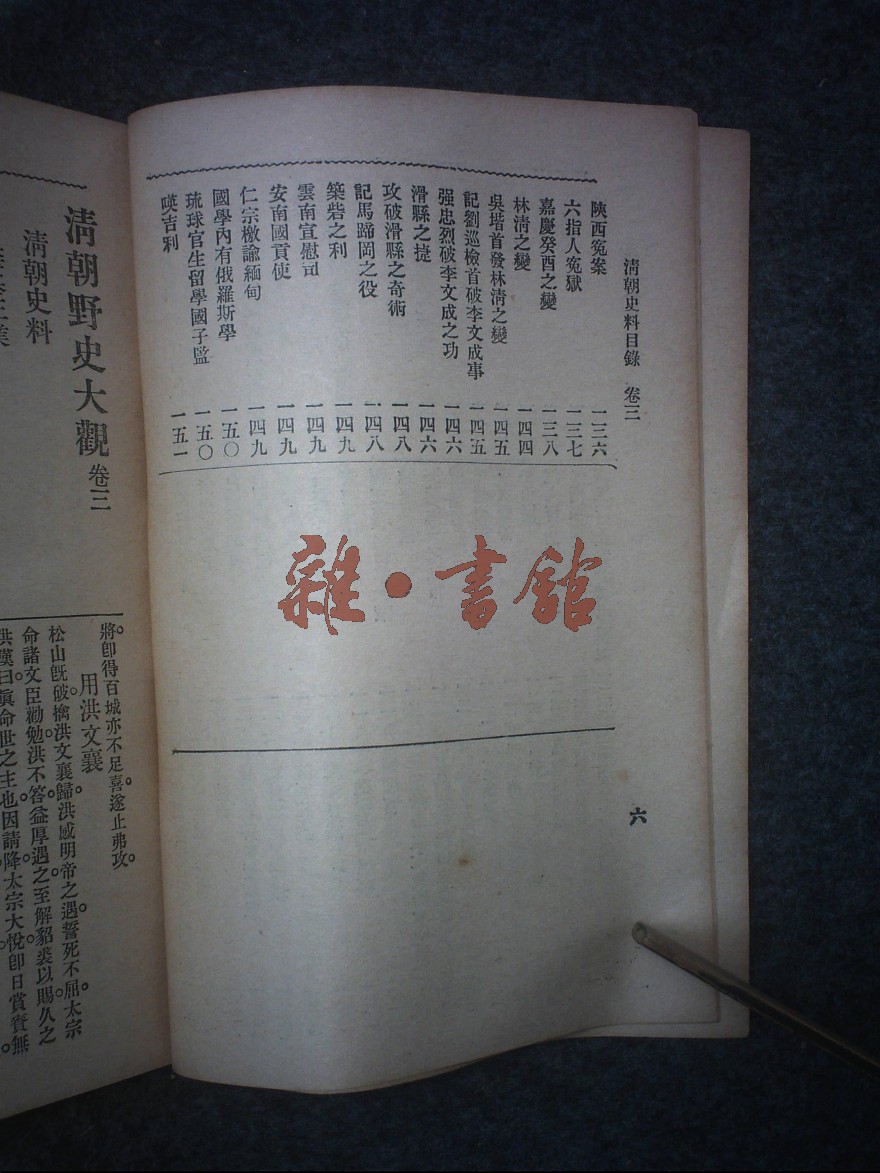 清朝史料目錄 卷三
陝西冤案 一三六
六指人冤獄 一三七
嘉慶癸酉之變 一三八
林清之變 一四四
吳堦首發林清之變 一四五
記劉巡檢首破李文成事 一四五
强忠烈破李文成之功 一四六
滑縣之捷 一四六
攻破滑縣之奇術 一四八
記馬蹄岡之役 一四八
築砦之利 一四九
雲南宣慰司 一四九
安南國貢使 一四九
仁宗檄諭緬甸 一四九
國學內有俄羅斯學 一五〇
琉球官生留學國子監 一五〇
暎吉利 一五一
六
雜·書館
清朝野史大觀 卷三
清朝史料
將卽得百城亦不足喜。遂止弗攻。
用洪文襄
松山旣破。擒洪文襄歸。洪感明帝之遇。誓死不屈。太宗
命諸文臣勸勉。洪不答。益厚遇之。至解貂裘以賜。久之
洪嘆曰。眞命世之主也。因請降。太宗大悅。卽日賞賚無